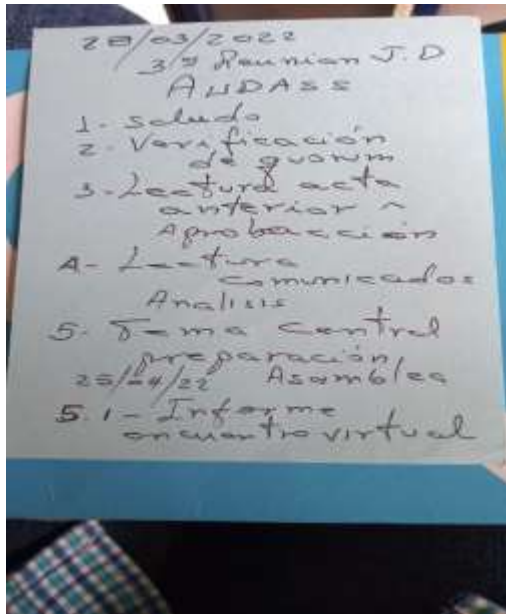 28/03/2022
3ª Reunion J.D
AUDASS
1- Saludo
2- Verificación
de quorum
3- Lectura acta
anterior ^
Aprobacción
4- Lectura
comunicados
Analisis
5. Tema central
preparación
25/04/22 Asamblea
5.1- Informe
encuentro virtual